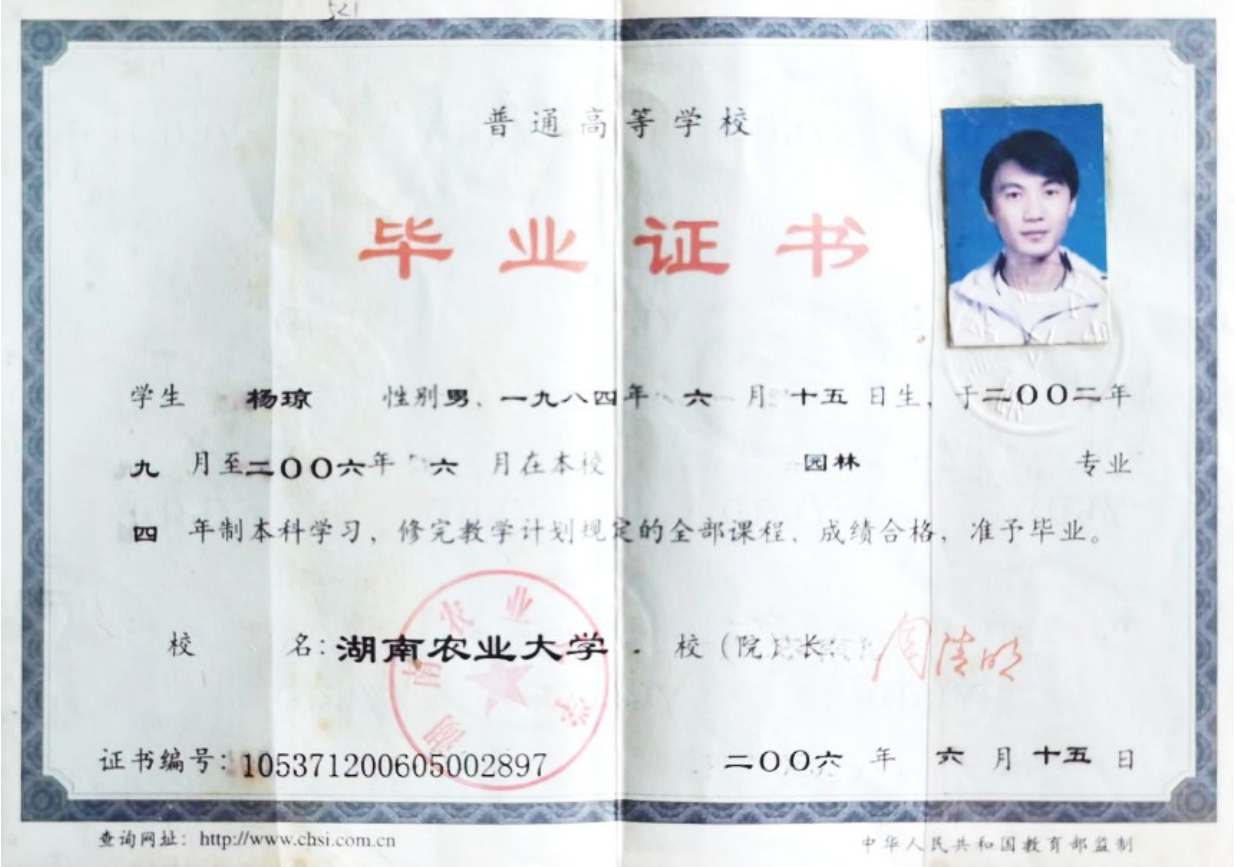 521
普通高等学校
毕业证书
学生 杨琼 性别男、一九八四年 六 月 十五 日生，于二〇〇二年
九 月至二〇〇六年 六 月在本校 园林 专业
四 年制本科学习、修完教学计划规定的全部课程、成绩合格，准予毕业。
校 名：湖南农业大学 校（院）长： 周清明
湖南农业大学
证书编号：105371200605002897 二〇〇六 年 六 月 十五 日
查询网址：http://www.chsi.com.cn 中华人民共和国教育部监制